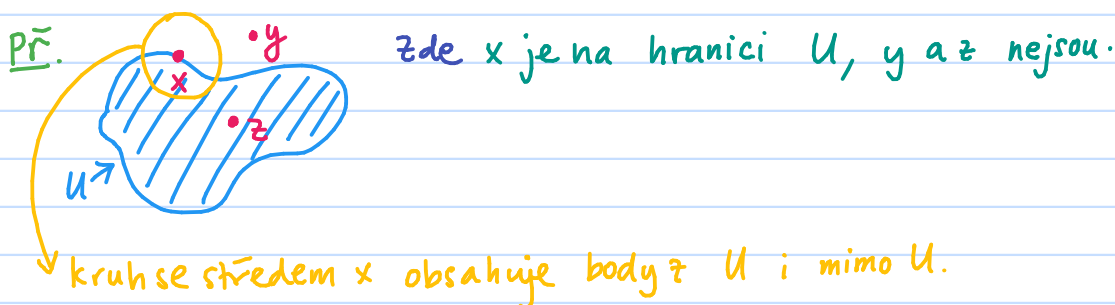 Př.
y
Zde x je na hranici U, y a z nejsou.
x
z
U
kruh se středem x obsahuje body z U i mimo U.